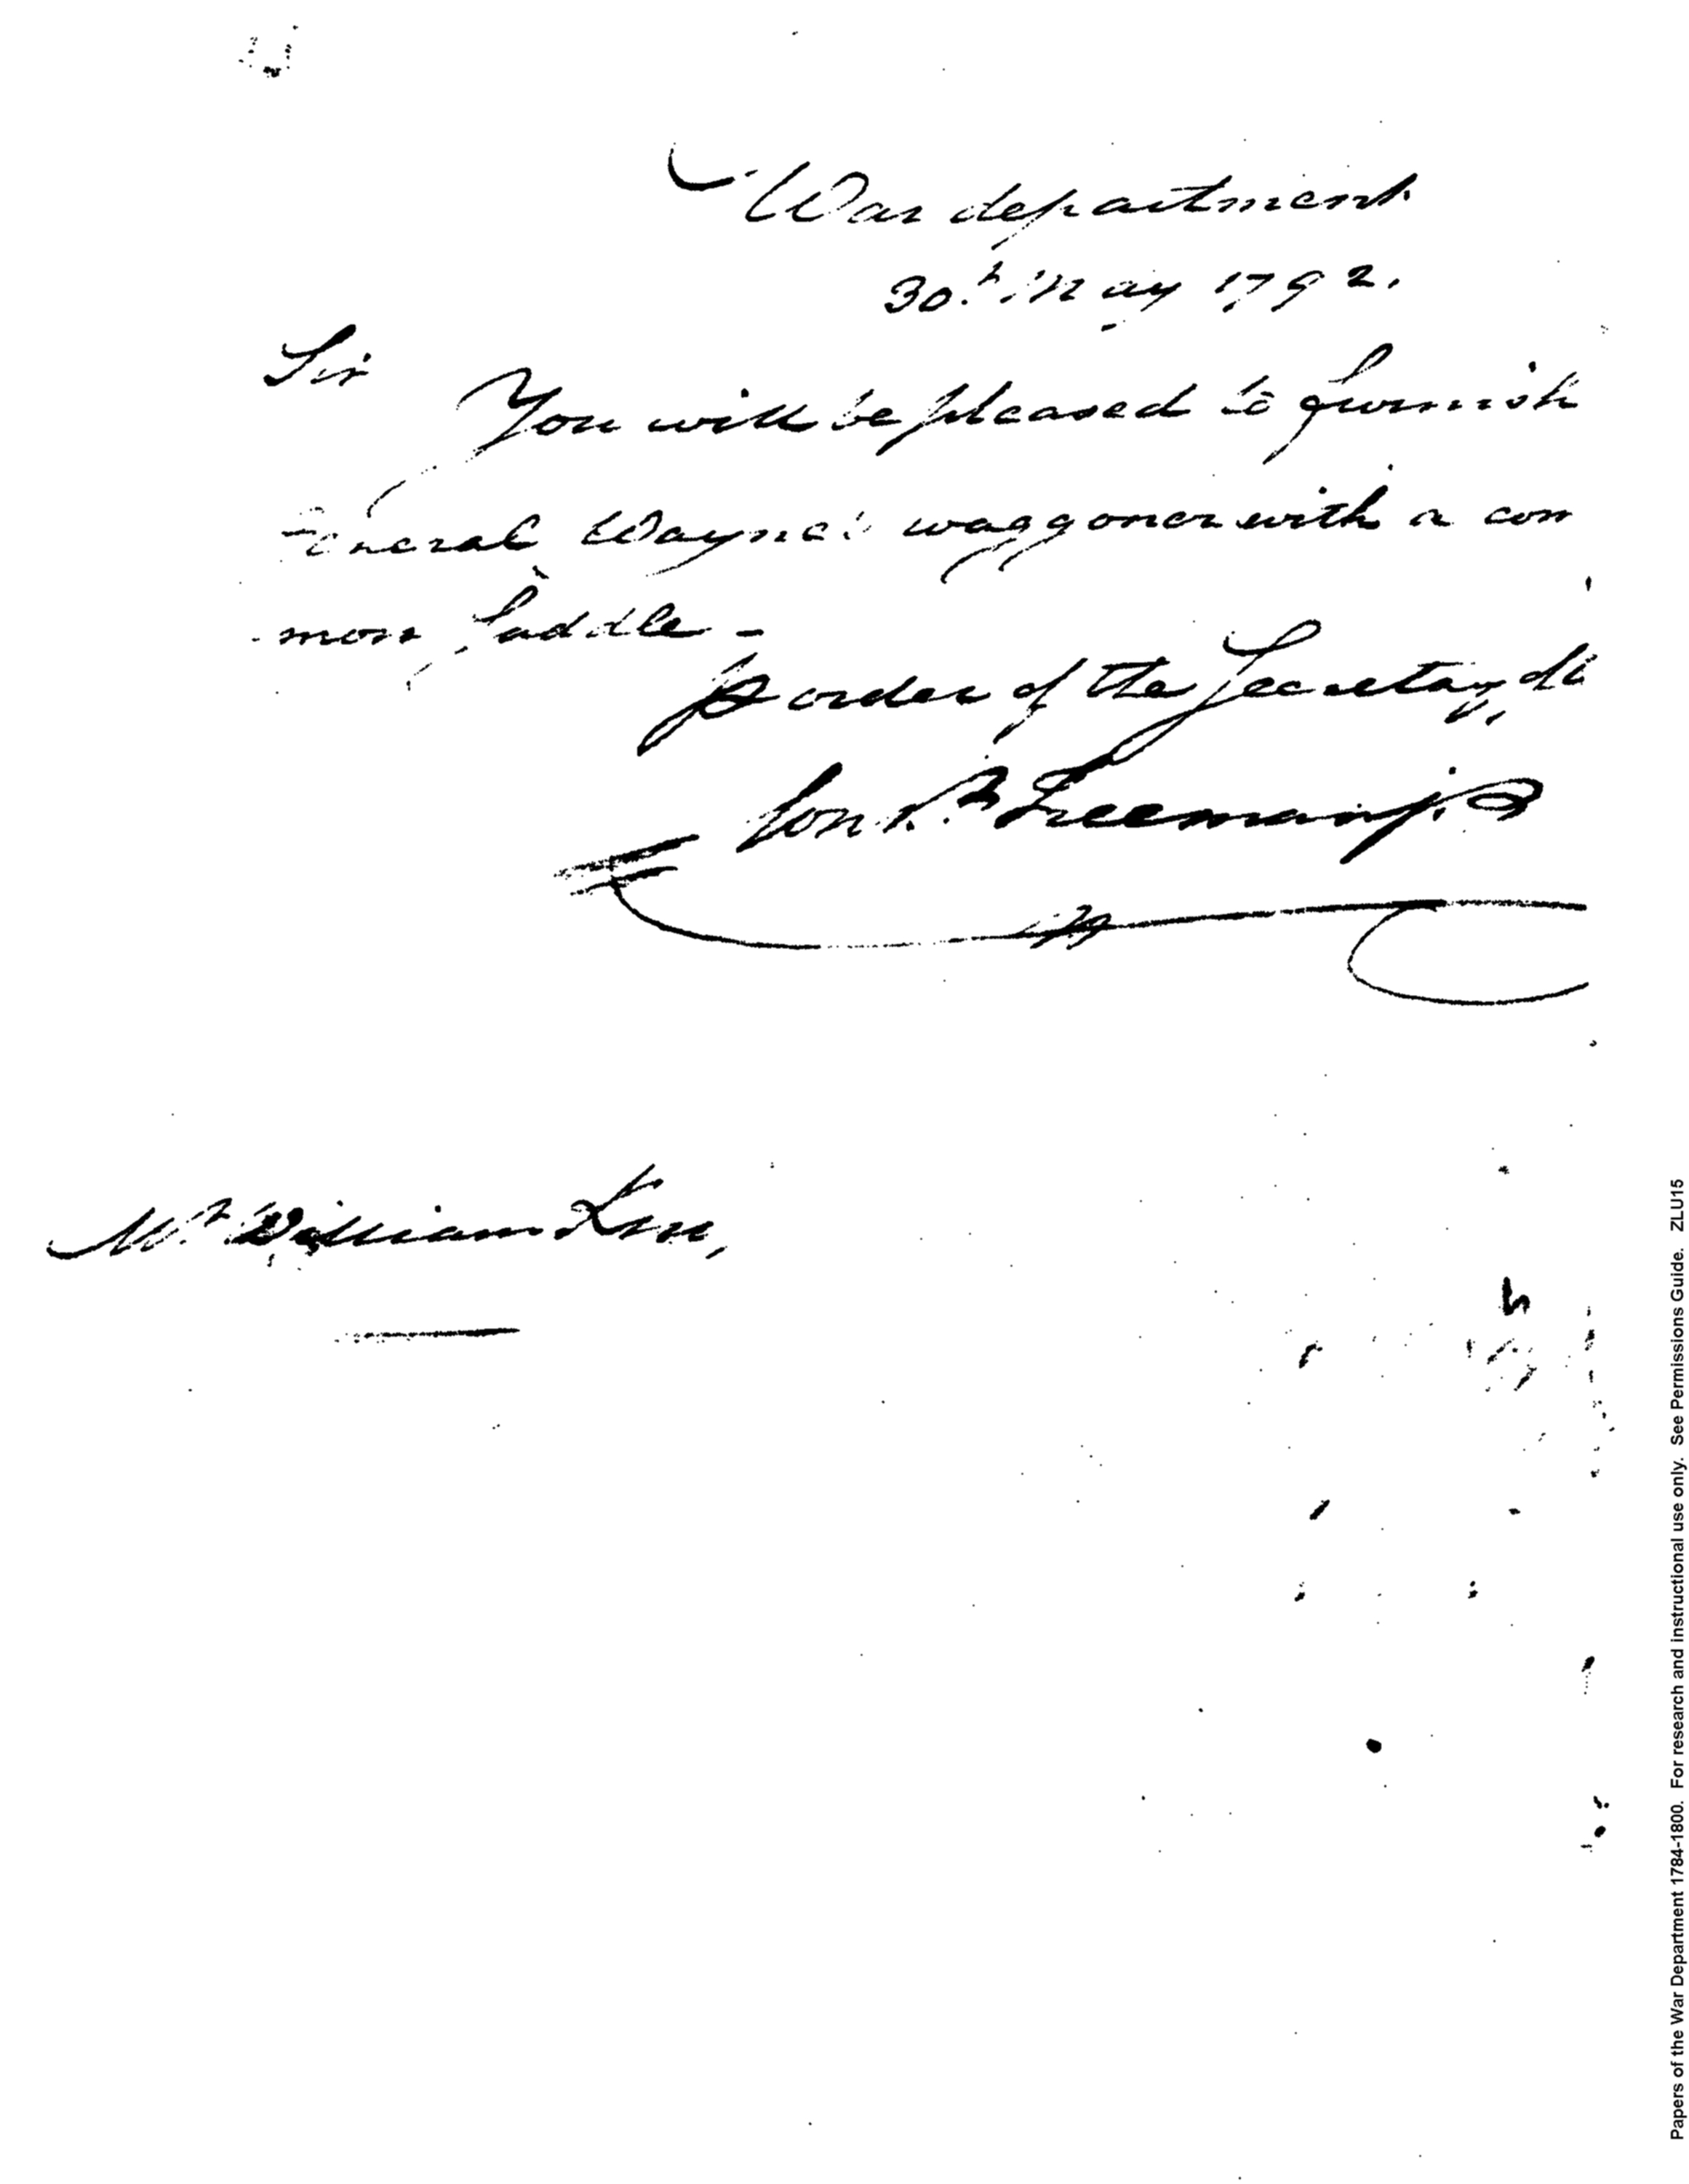 War department
30th May 1792.
Sir
You will be pleased to furnish
General Wayne's waggoner with a com
mon Saddle -
order of the Secretary
Const. Freeman j.
Mr. William Knox,
Papers of the War Department 1784-1800. For research and instructional use only. See Permissions Guide. ZLU15